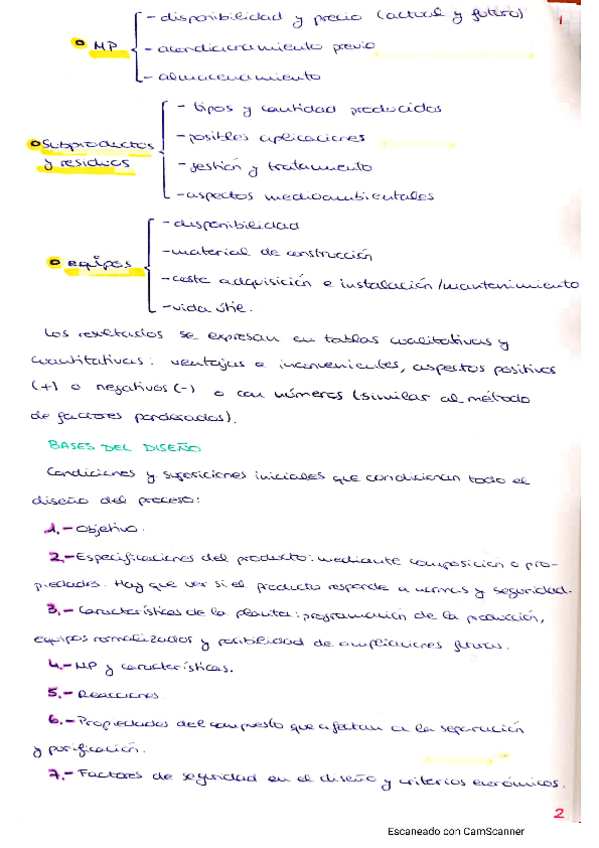 - disponibilidad y precio (actual y futuro)
1
MP
- acondicionamiento previo
- almacenamiento
- tipos y cantidad producidos
Subproductos
- posibles aplicaciones
y residuos
- gestión y tratamiento
- aspectos medioambientales
- disponibilidad
- material de construcción
equipos
- coste adquisición e instalación/mantenimiento
- vida útil.
Los resultados se expresan en tablas cualitativas y
cuantitativas: ventajas e inconvenientes, aspectos positivos
(+) o negativos (-) o con números (similar al método
de factores ponderados).
BASES DEL DISEÑO
Condiciones y suposiciones iniciales que condicionan todo el
diseño del proceso:
1.- Objetivo.
2.- Especificaciones del producto: mediante composición o pro-
piedades. Hay que ver si el producto responde a normas y seguridad.
3.- Características de la planta: programación de la producción,
equipos normalizados y posibilidad de ampliaciones futuras.
4.- MP y características.
5.- Reacciones
6.- Propiedades del compuesto que afectan a la separación
y purificación.
7.- Factores de seguridad en el diseño y criterios económicos.
2
Escaneado con CamScanner